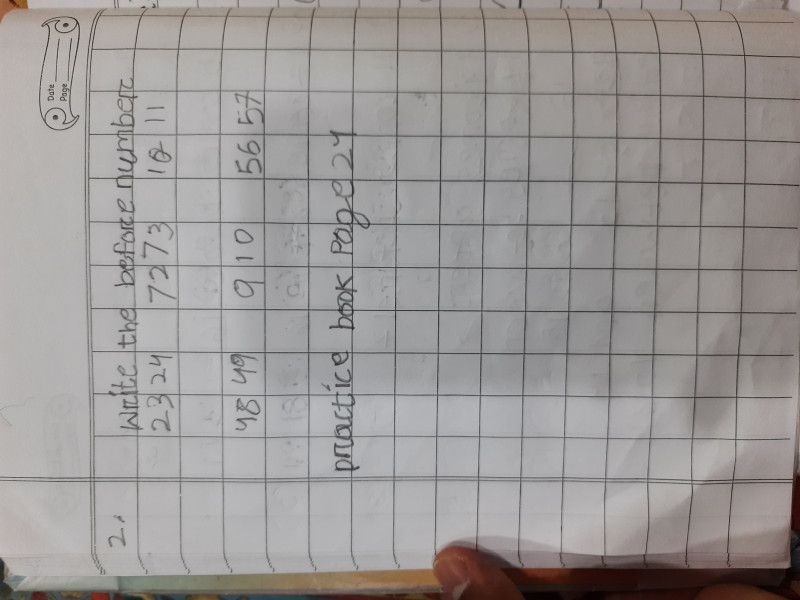 Date
Page
2. Write the before number
23 24 72 73 10 11
48 49 9 10 56 57
practice book Page 24